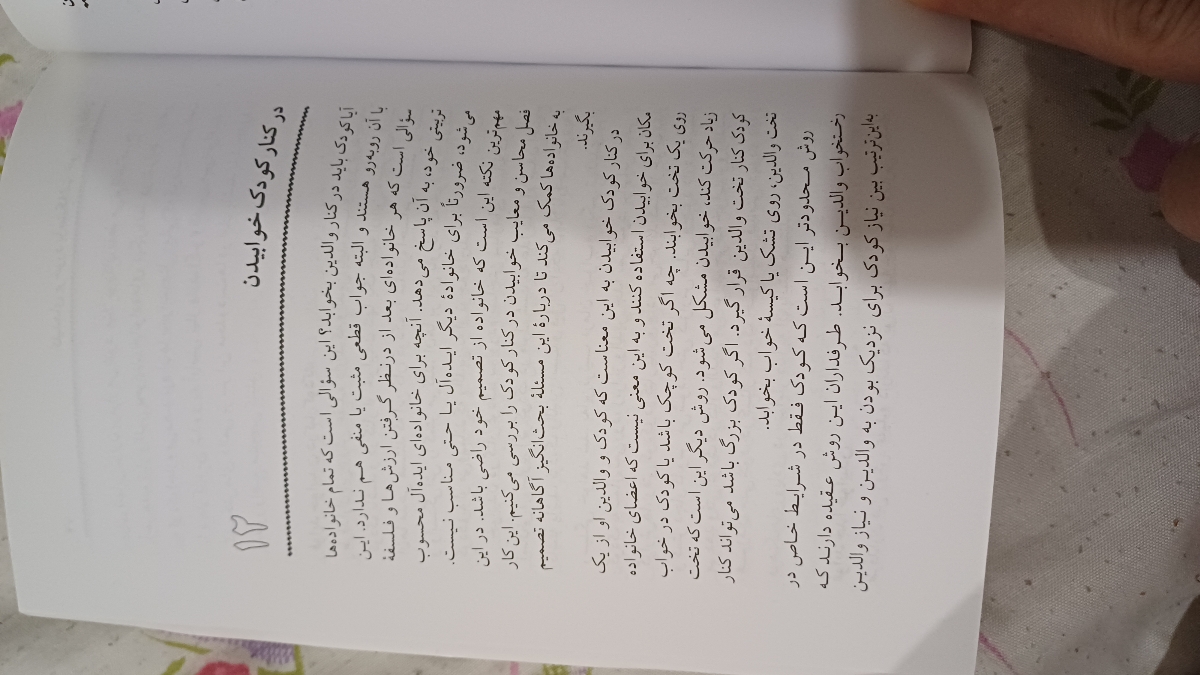 ۱۲
در کنار کودک خوابیدن
آیا کودک باید در کنار والدین بخوابد؟ این سؤالی است که تمام خانواده‌ها
با آن روبه‌رو هستند و البته جواب قطعی مثبت یا منفی هم ندارد. این
سؤالی است که هر خانواده‌ای بعد از درنظر گرفتن ارزش‌ها و فلسفهٔ
تربیتی خود، به آن پاسخ می‌دهد. آنچه برای خانواده‌ای ایده‌آل محسوب
می‌شود، ضرورتاً برای خانوادهٔ دیگر ایده‌آل یا حتی مناسب نیست.
مهم‌ترین نکته این است که خانواده از تصمیم خود راضی باشد. در این
فصل محاسن و معایب خوابیدن در کنار کودک را بررسی می‌کنیم. این کار
به خانواده‌ها کمک می‌کند تا دربارهٔ این مسئلهٔ بحث‌انگیز آگاهانه تصمیم
بگیرند.
در کنار کودک خوابیدن به این معناست که کودک و والدین او از یک
مکان برای خوابیدن استفاده کنند و به این معنی نیست که اعضای خانواده
روی یک تخت بخوابند. چه اگر تخت کوچک باشد یا کودک در خواب
زیاد حرکت کند، خوابیدن مشکل می‌شود. روش دیگر این است که تخت
کودک کنار تخت والدین قرار گیرد. اگر کودک بزرگ باشد می‌تواند کنار
تخت والدین، روی تشک یا کیسهٔ خواب بخوابد.
روش محدودتر این است که کودک فقط در شرایط خاص در
رختخواب والدین بخوابد. طرفداران این روش عقیده دارند که
به‌این‌ترتیب بین نیاز کودک برای نزدیک بودن به والدین و نیاز والدین